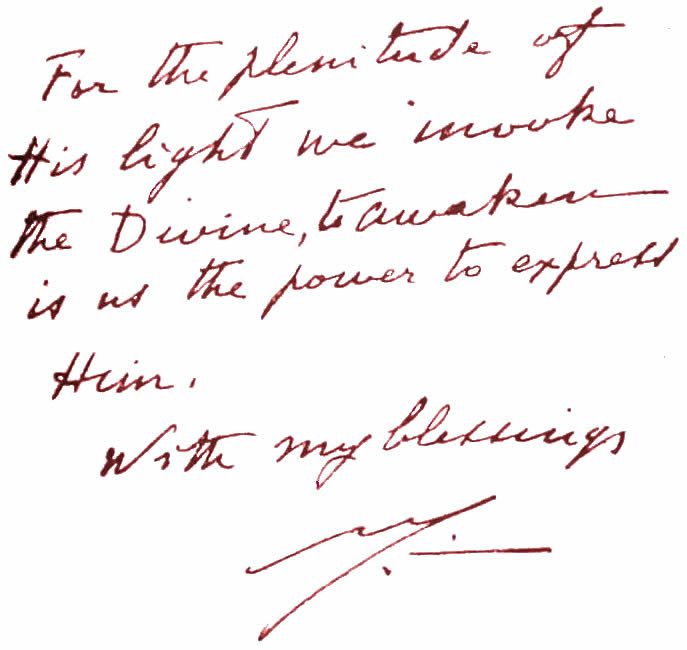 For the plenitude of
His light we invoke
the Divine, to awaken
is us the power to express
Him.
With my blessings